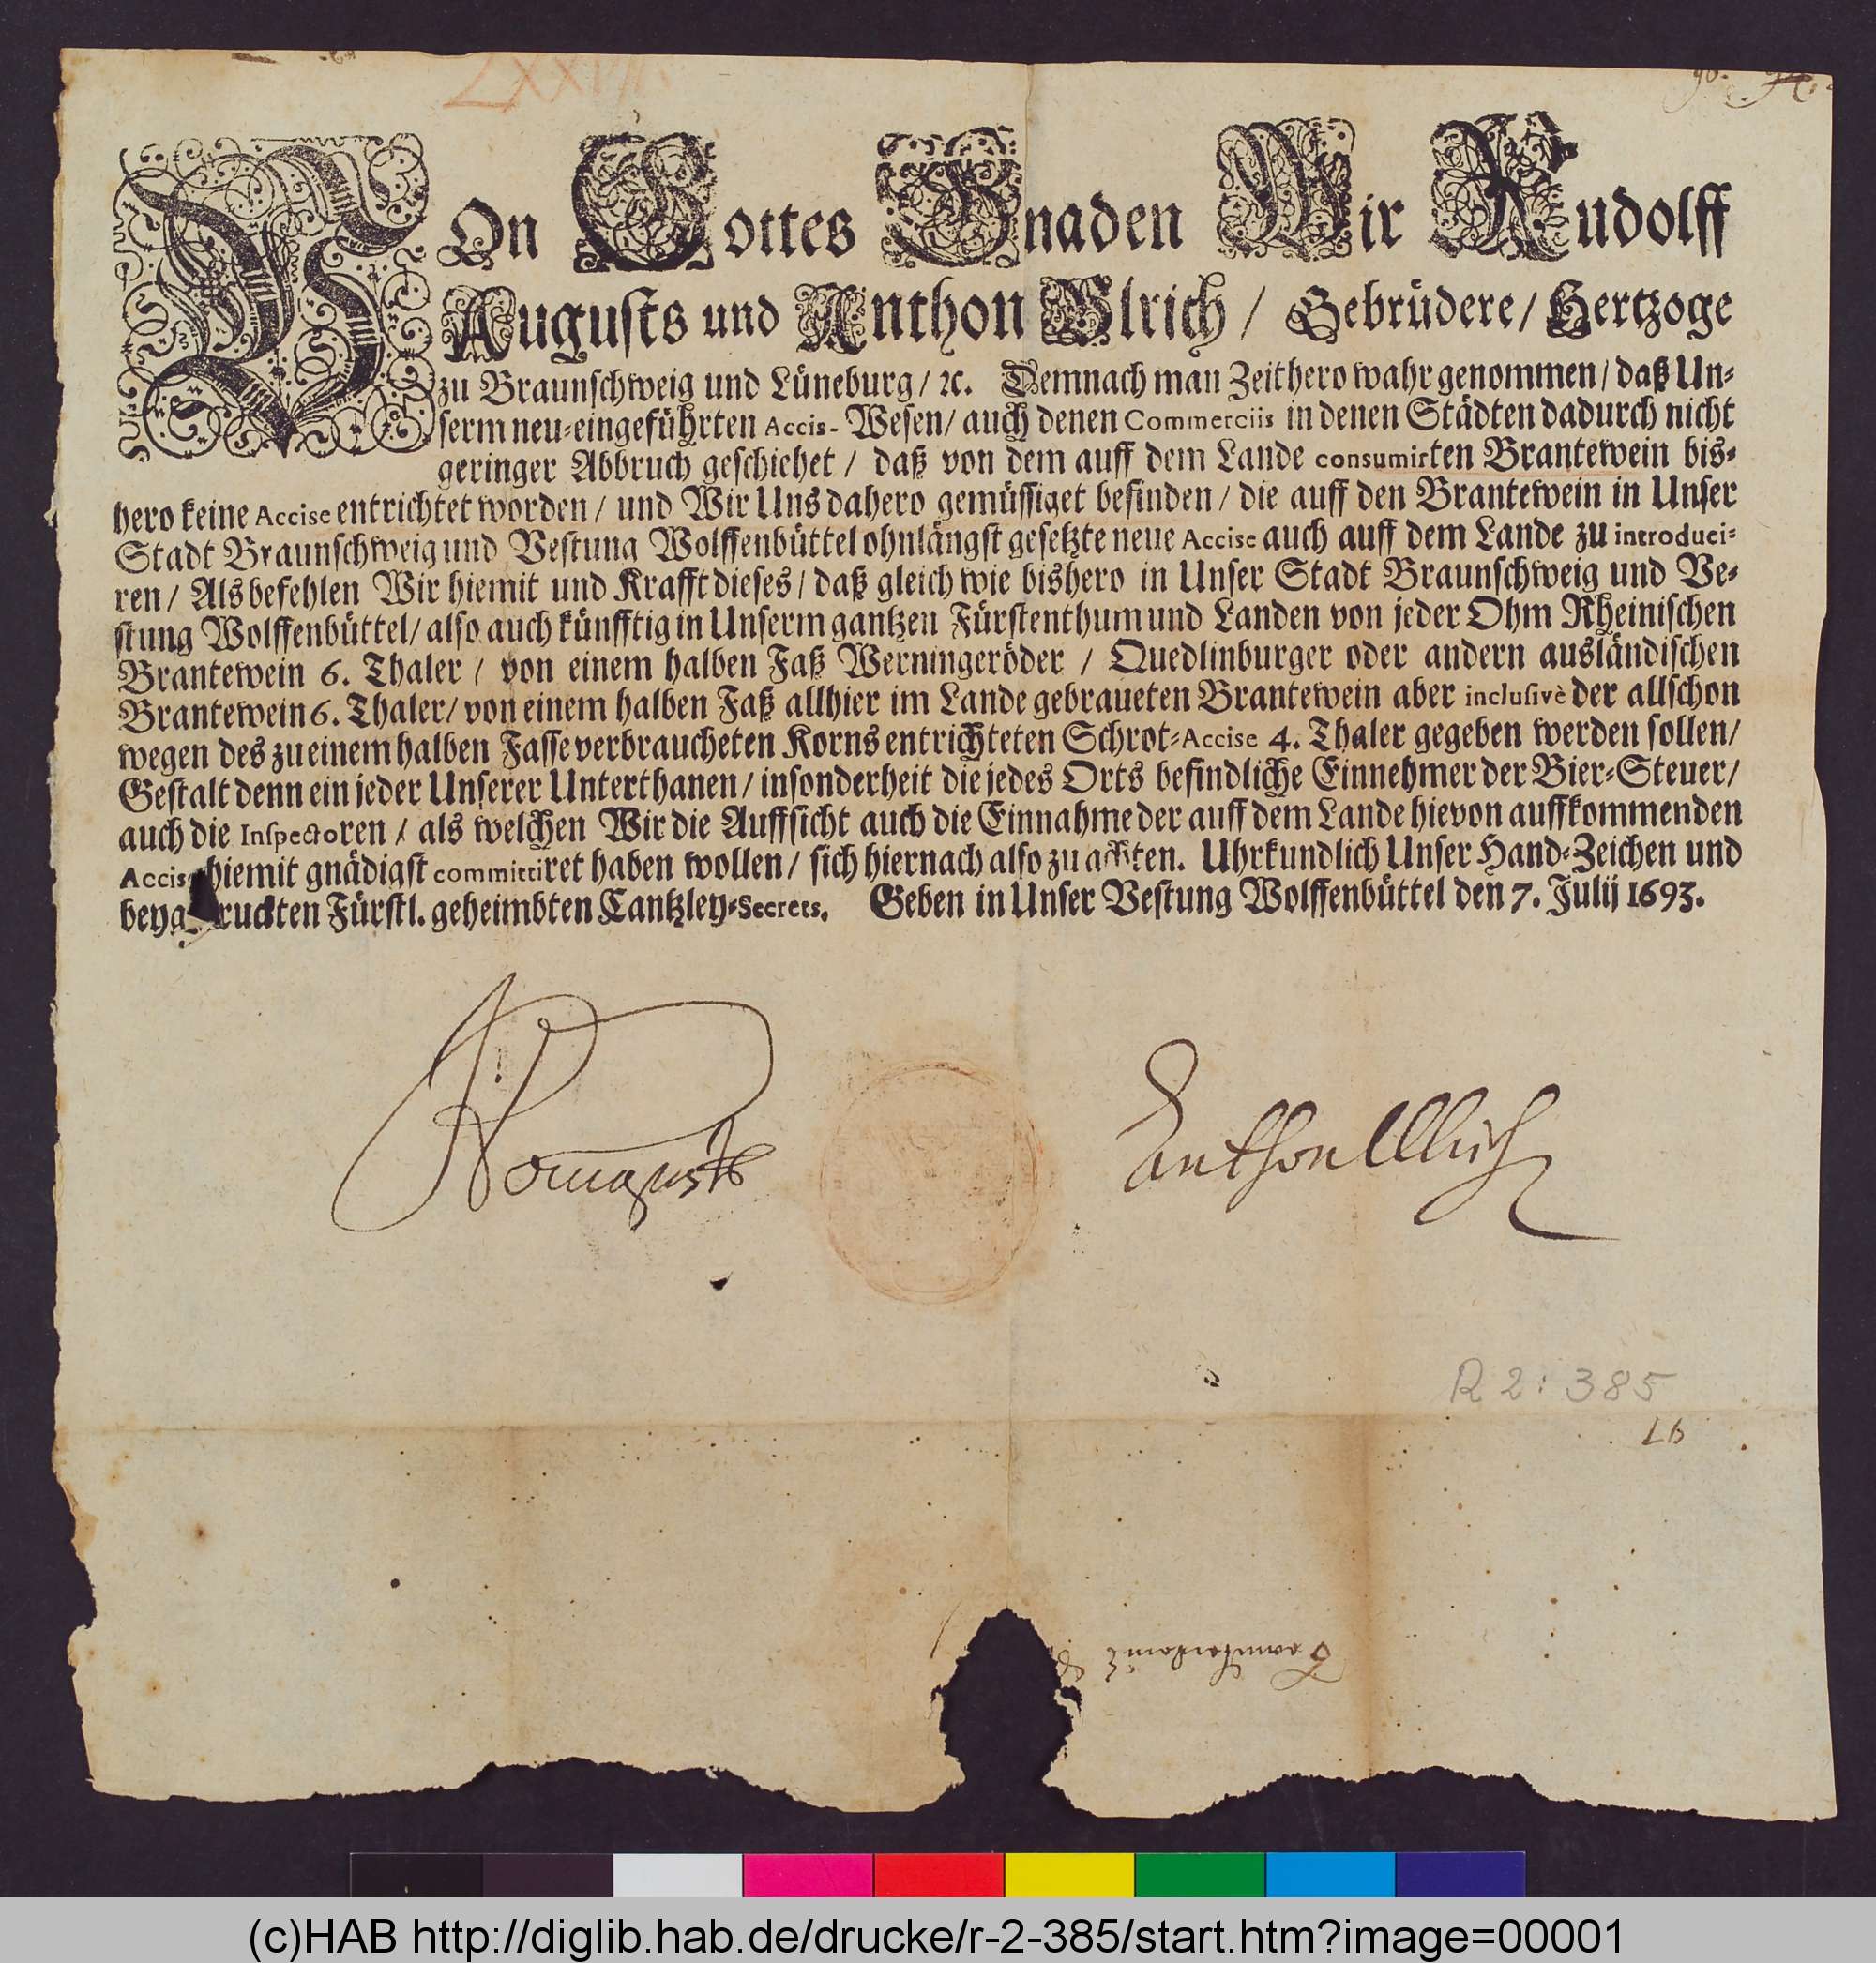 LXXVII.
VOn Gottes Gnaden Wir Rudolff
Augusts und Anthon Vlrich / Gebrüdere / Hertzoge
zu Braunschweig und Lüneburg / ꝛc. Demnach man Zeithero wahrgenommen / daß Un⸗
serm neu⸗eingeführten Accis- Wesen / auch denen Commerciis in denen Städten dadurch nicht
geringer Abbruch geschiehet / daß von dem auff dem Lande consumirten Brantewein bis⸗
hero keine Accise entrichtet worden / und Wir Uns dahero gemüssiget befinden / die auff den Brantewein in Unser
Stadt Braunschweig und Vestung Wolffenbüttel ohnlängst gesetzte neue Accise auch auff dem Lande zu introduci⸗
ren / Als befehlen Wir hiemit und Krafft dieses / daß gleich wie bishero in Unser Stadt Braunschweig und Ve⸗
stung Wolffenbüttel / also auch künfftig in Unserm gantzen Fürstenthum und Landen von jeder Ohm Rheinischen
Brantewein 6. Thaler / von einem halben Faß Werningeröder / Quedlinburger oder andern ausländischen
Brantewein 6. Thaler / von einem halben Faß allhier im Lande gebraueten Brantewein aber inclusivè der allschon
wegen des zu einem halben Fasse verbraucheten Korns entrichteten Schrot⸗Accise 4. Thaler gegeben werden sollen /
Gestalt denn ein jeder Unserer Unterthanen / insonderheit die jedes Orts befindliche Einnehmer der Bier⸗Steuer /
auch die Inspectoren / als welchen Wir die Auffsicht auch die Einnahme der auff dem Lande hievon auffkommenden
Accise hiemit gnädigst committiret haben wollen / sich hiernach also zu achten. Uhrkundlich Unser Hand⸗Zeichen und
beygedruckten Fürstl. geheimbten Cantzley⸗Secrets. Geben in Unser Vestung Wolffenbüttel den 7. Julij 1693.
RAugusts
Anthon Ulrich
R 2: 385
(c)HAB http://diglib.hab.de/drucke/r-2-385/start.htm?image=00001